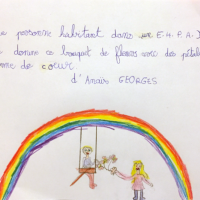 personne habitant dans un E.H.P.A.
donne ce bouquet de fleurs avec des pétal
me de coeur.
d'Anaïs GEORGES